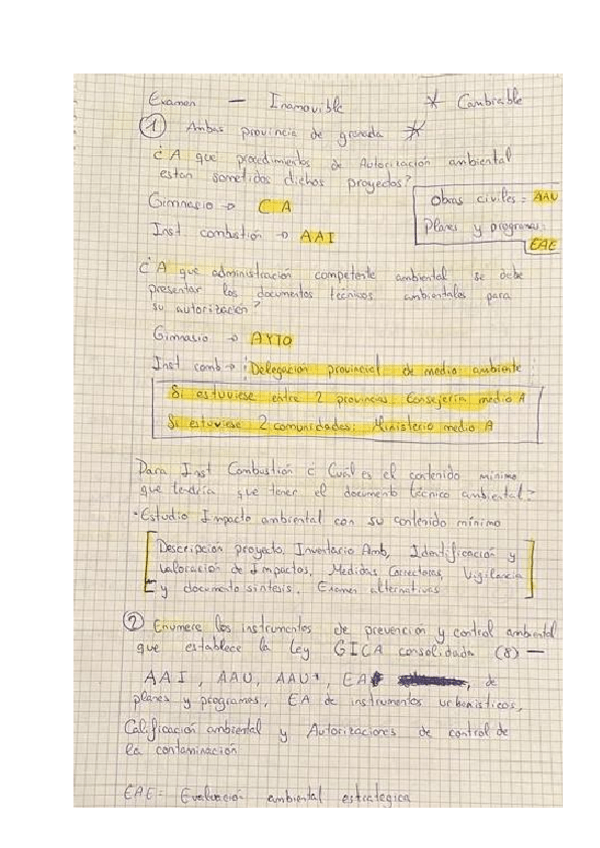 Examen — Inamovible * Cambiable
① Ambas provincia de granada *
¿A que procedimientos de Autorización ambiental
estan sometidos dichos proyectos?
Gimnasio → CA
Inst. combustión → AAI
Obras civiles = AAU
Planes y programas:
EAE
¿A que administración competente ambiental se debe
presentar los documentos técnicos ambientales para
su autorización?
Gimnasio → AYTO
Inst comb → Delegacion provincial de medio ambiente
Si estuviese entre 2 provincias: Consejería medio A
Si estuviese 2 comunidades: Ministerio medio A
Para Inst Combustión ¿Cuál es el contenido mínimo
que tendría que tener el documento técnico ambiental?
• Estudio Impacto ambiental con su contenido mínimo
Descripcion proyecto, Inventario Amb, Identificación y
valoracion de Impactos, Medidas Correctoras, Vigilancia
y documento sintesis. Examen alternativas
② Enumere los instrumentos de prevención y control ambiental
que establece la Ley GICA consolidada (8) —
AAI, AAU, AAU*, EA de
planes y programas, EA de instrumentos urbanisticos,
Calificación ambiental y Autorizaciones de control de
la contaminación
EAE: Evaluación ambiental estrategica